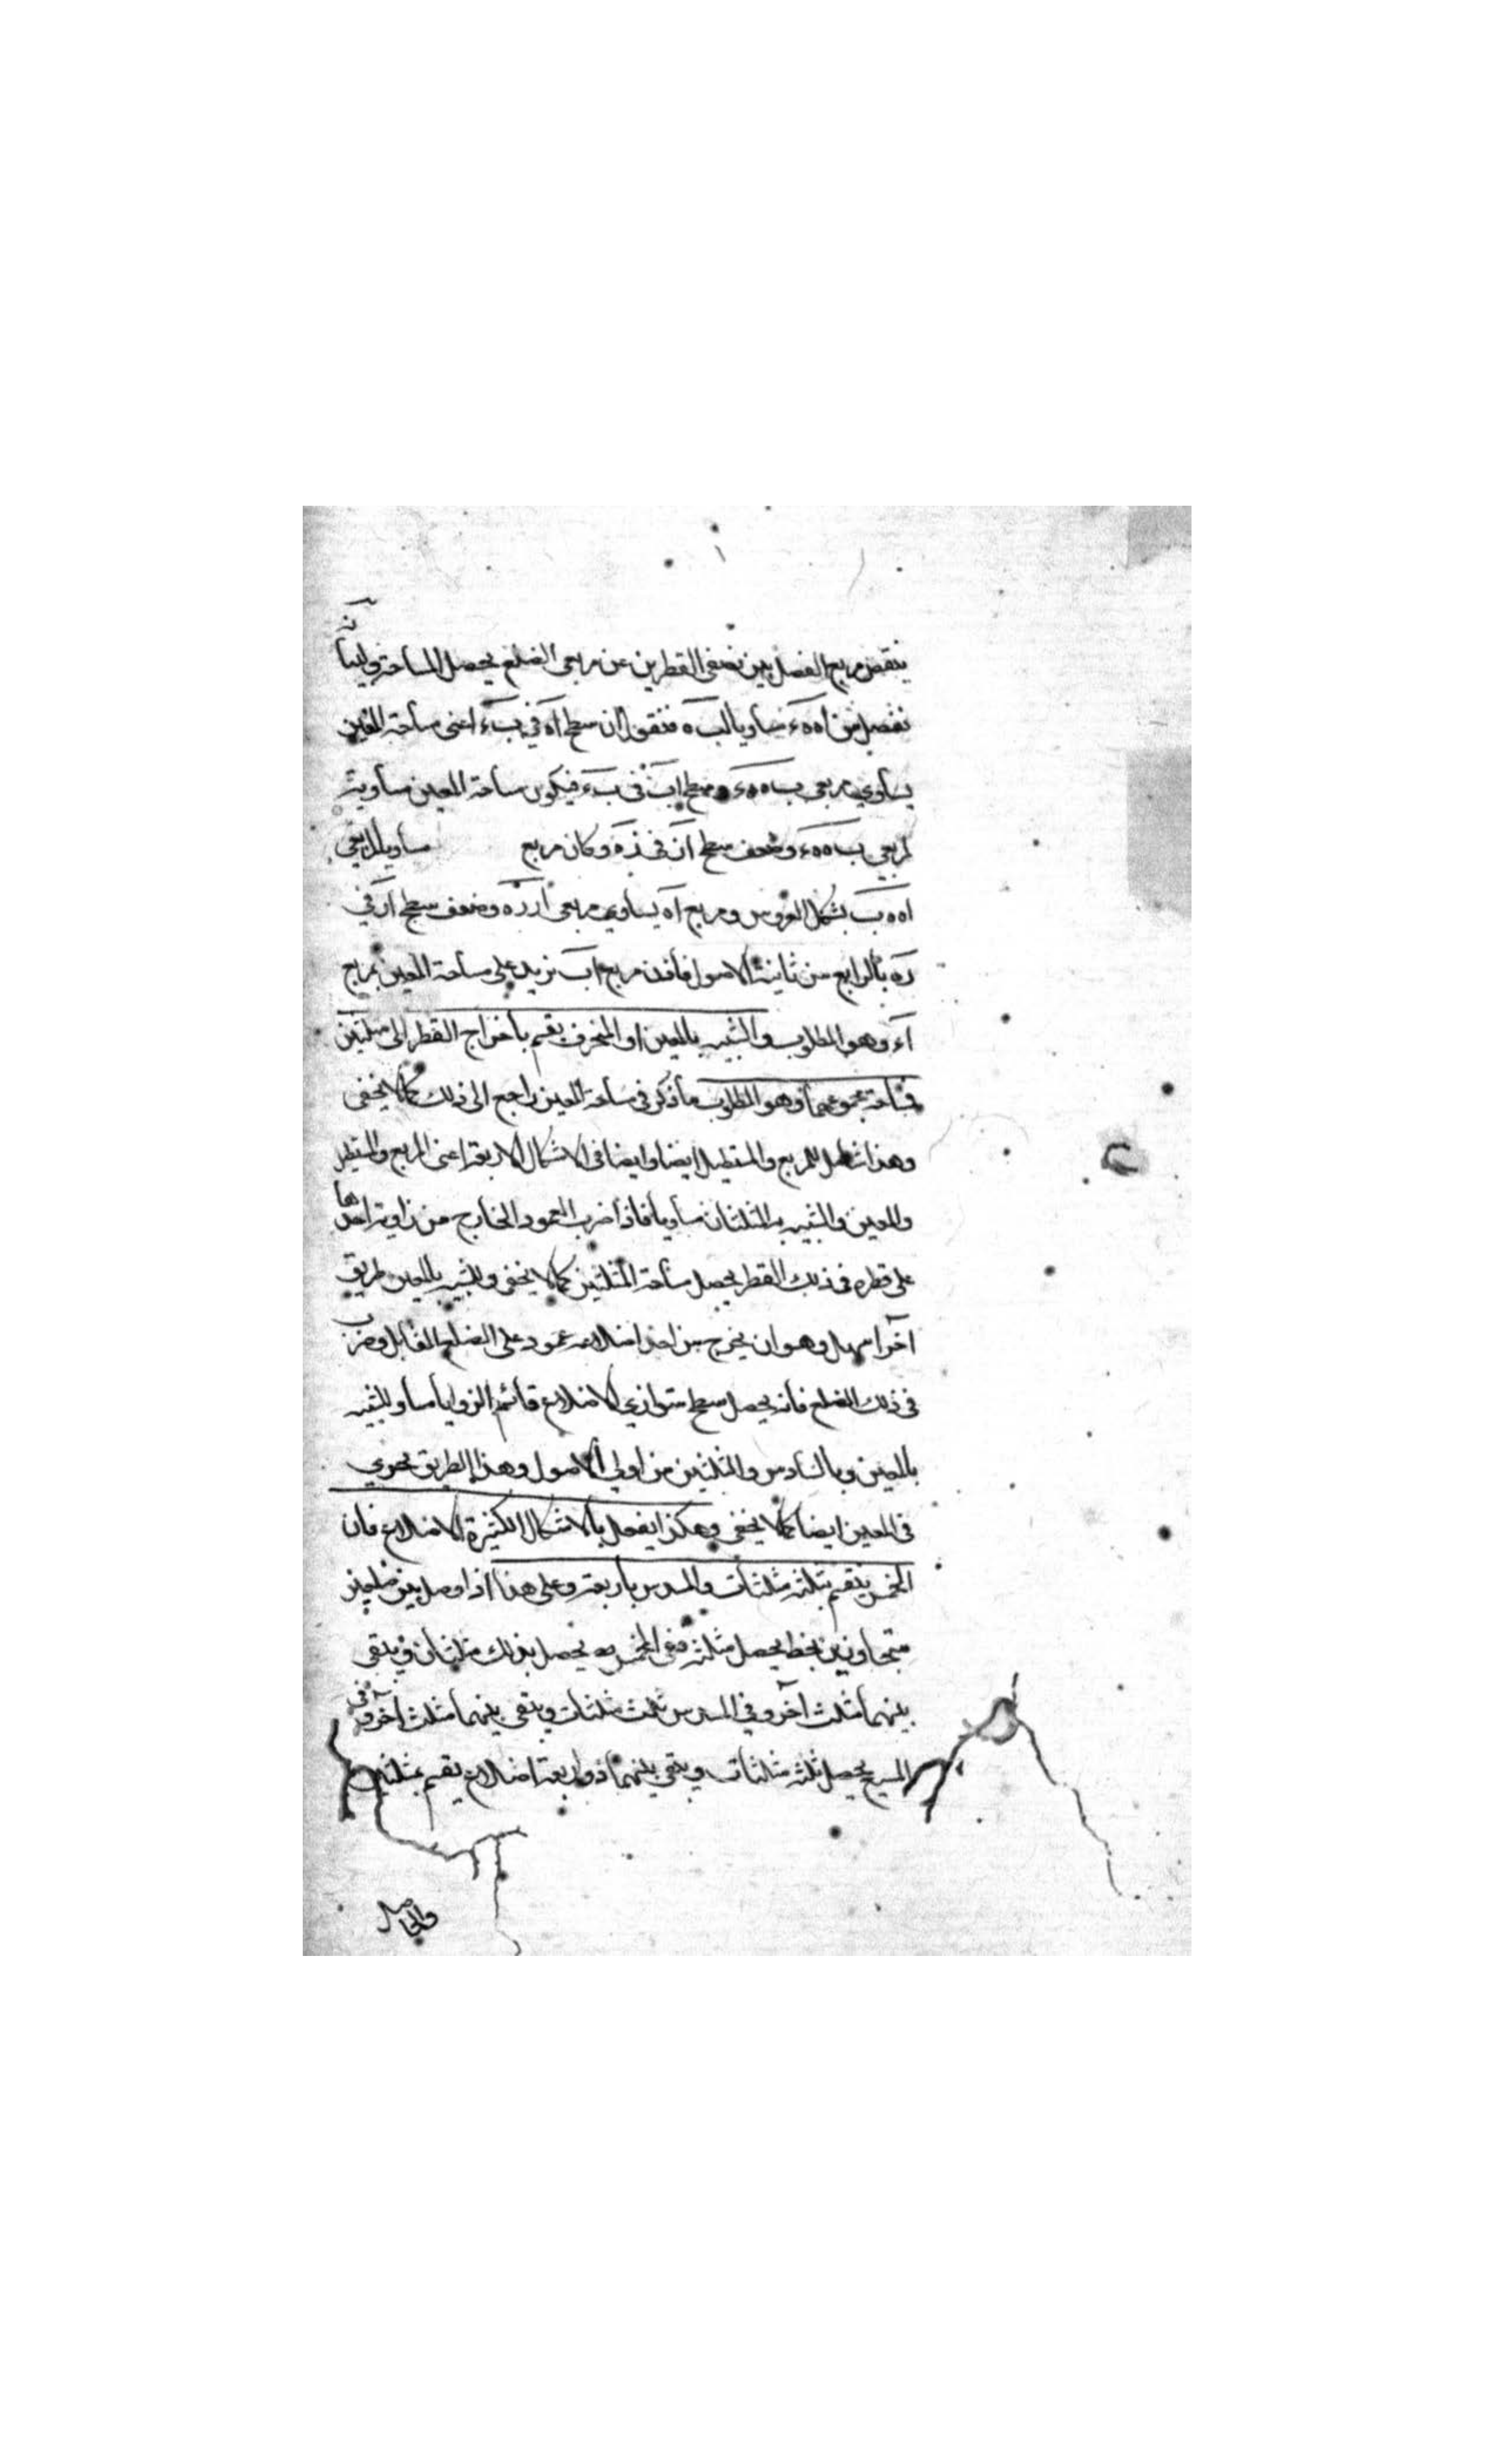 ينقص مربع الفضل بين نصفى القطرين عن مربعى الضلع يحصل المساحة وليبا
نه
نفصل من اه ه‍ء مساويا لب ه فنقول ان سطح اه فى بء اعنى مساحة المعين
يساوى مربعى ب ه ه‍ء وسطح اب فى بء فيكون مساحة المعين مساوية
لمربعى ب ه ه‍ء وضعف سطح از فى زه وكان مربع مساويا لمربعى
اه ه ب بشكل العروس ومربع اه يساوى مربعى ار ره وضعف سطح ار فى
ره بالرابع من ثانية الاصول فاذن مربع اب يزيد على مساحة المعين بمربع
اء وهو المطلوب والشبيه بالمعين او المنحرف يقسم باخراج القطر الى مثلثين
فمساحة مجموعهما وهو المطلوب ما ذكر فى مساحة المعين راجع الى ذلك كما لا يخفى
وهذا شامل للمربع والمستطيل ايضا وايضا فى الاشكال الاربعة اعنى المربع والمستطيل
والمعين والشبيه به المثلثان مساويا فاذا ضرب العمود الخارج من زاوية احدهما
على قطره فى ذلك القطر يحصل مساحة المثلثين كما لا يخفى وللشبيه بالمعين طريق
آخر اسهل وهو ان يخرج من احد اضلاعه عمود على الضلع المقابل وضرب
فى ذلك الضلع فانه يحصل سطح متوازى الاضلاع قائم الزوايا مساو للشبيه
بالمعين وبالسادس والثلثين من اولى الاصول وهذا الطريق يجرى
فى المعين ايضا كما لا يخفى وهكذا يفعل بالاشكال الكثيرة الاضلاع فان
المخمس ينقسم بثلثة مثلثات والمسدس باربعة وعلى هذا اذا وصل بين ضلعين
متجاورين بخط يحصل مثلثه ففى المخمس يحصل بذلك مثلثان ويبقى
بينهما مثلث آخر وفى المسدس ثلث مثلثات ويبقى بينهما مثلث آخر وفى
المسبع يحصل ثلثه مثلثات ويبقى بينهما ذو اربعة اضلاع يقسم بمثلثين
والحاصل